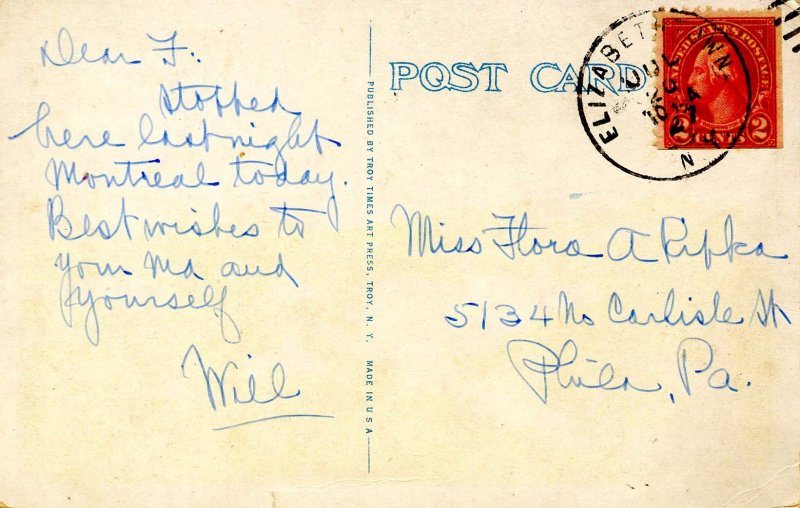 Dear F:
Stopped
here last night
Montreal today.
Best wishes to
your Ma and
yourself
Will
PUBLISHED BY TROY TIMES ART PRESS, TROY, N. Y. MADE IN U S A
POST CARD
ELIZABETHTOWN
JUL
N
UNITED STATES POSTAGE
2 CENTS 2
Miss Flora A Ripka
5134 No Carlisle St
Phila, Pa.